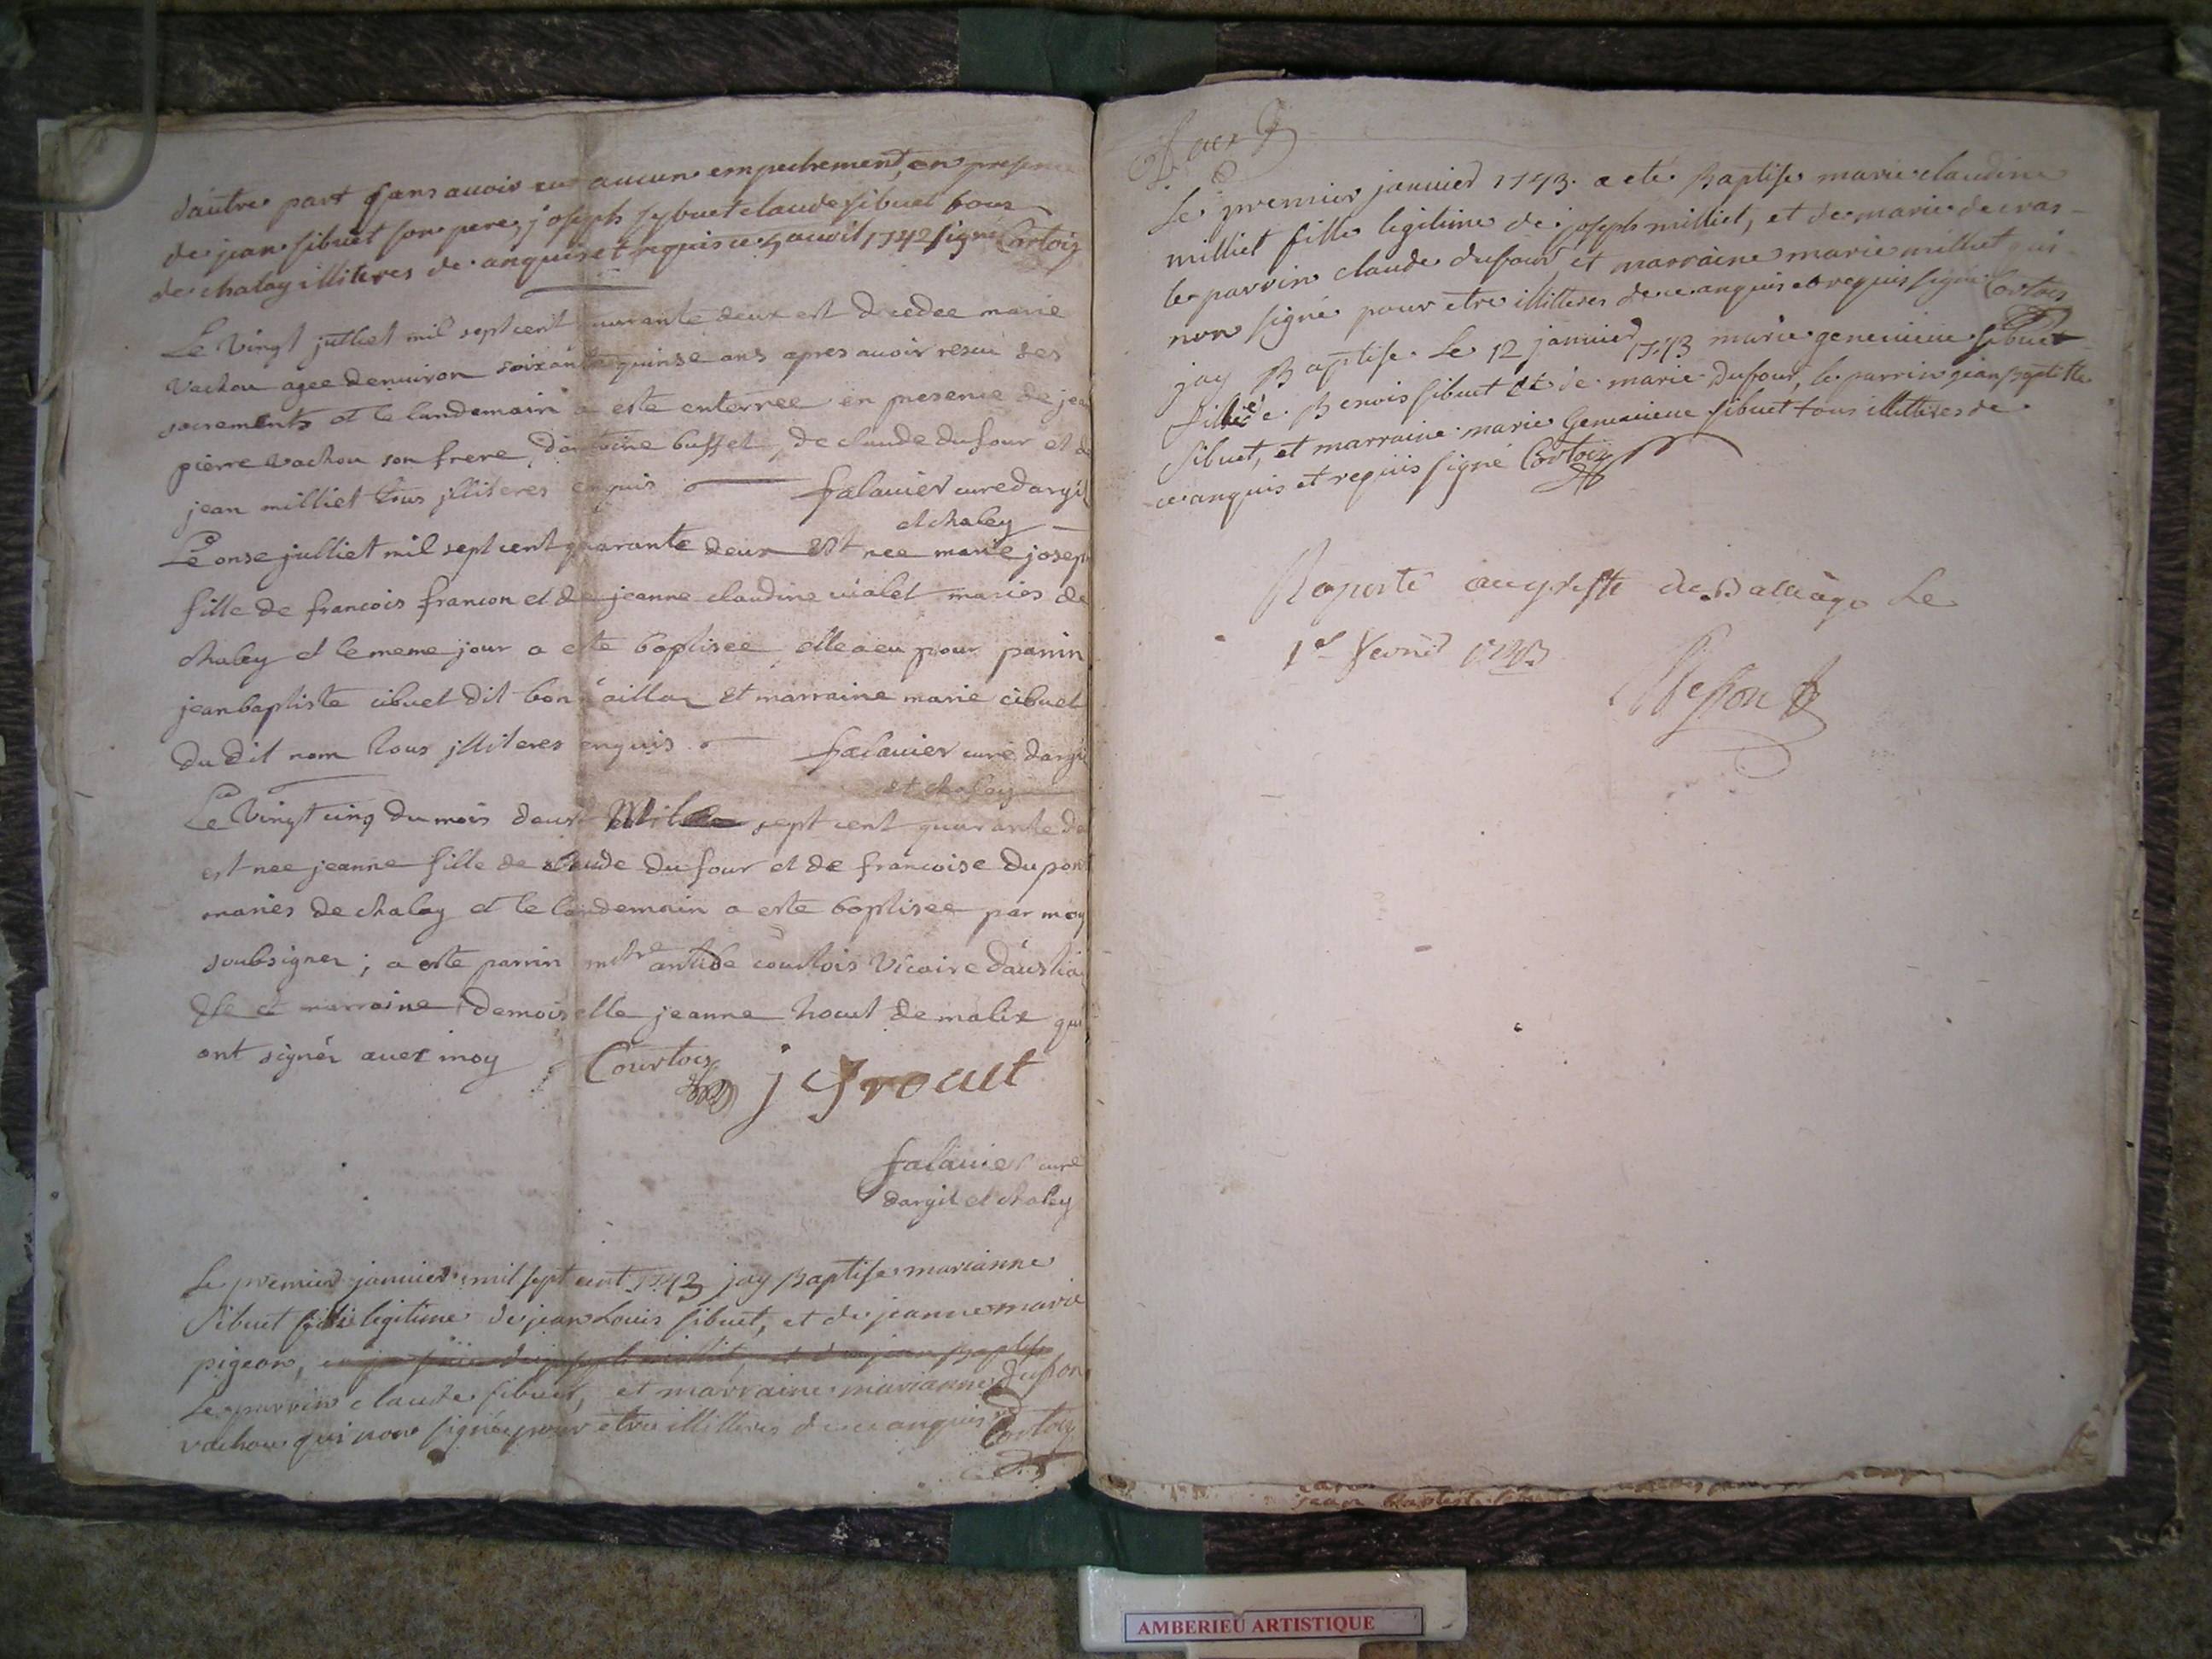 d'autre part sans avoir eu aucun empechement, en presence
de jean sibuet son pere, joseph sybuet claude sibuet tous
de chaley illiteres de anquis et requis ce 5 avvil 1742 signé Cortois
Le vingt julliet mil sept cent quarante deux est decedee marie
vachou agee denuiron soixante quinse ans apres auoir rescu ses
sacrements et le landemain a este enterree en presence de jean
pierre vachou son frere, dantoine buffet, de claude dufour et de
jean milliet tous jlliteres enquis falauier cure dargil
et chaley
Le onse julliet mil sept cent quarante deux est nee marie josep
fille de francois francon et de jeanne claudine vialet maries de
chaley et le meme jour a este baptisee elle a eu pour parrin
jean baptiste cibuet dit bon et marraine marie cibuet
du dit nom tous jlliteres enquis falauier curé dargi
et chaley
Le Vingt cinq du mois daust Mil sept cent quarante de
est nee jeanne fille de claude dufour et de francoise dupont
mariés de chaley et le landemain a este baptisee par moy
soubsigner ; a este parrin mtre antide courtois Vicaire
et marraine demoiselle jeanne de malix qui
ont signér auec moy Courtois
j
falauier curé
dargil et chaley
Le premier januier mil sept cent 1743 jay Baptise marianne
sibuet fille legitime de jean Louis sibuet, et de jeanne marie
pigeon,
Le parrin claude sibuet, et marraine marianne
vachou qui non signé pour etre illitteres de ce anquis Cortois
Le premier januier 1743. a eté Baptise marie claudine
milliet fille legitime de joseph milliet, et de marie decras-
le parrin claude dufour, et marraine marie milliet qui
non signé pour etre illitteres de ce anquis et requis signé Cortois
jay Baptise Le 12 januier 1743 marie geneuieue sibuet
fille de Benois sibuet et de marie Dufour, le parrin jean Baptiste
sibuet, et marraine marie Geneuieue sibuet tous illitteres de
ce anquis et requis signé Cortois
Raporté au greffe de Le
1er fevrier 1743
jean Baptiste
AMBERIEU ARTISTIQUE